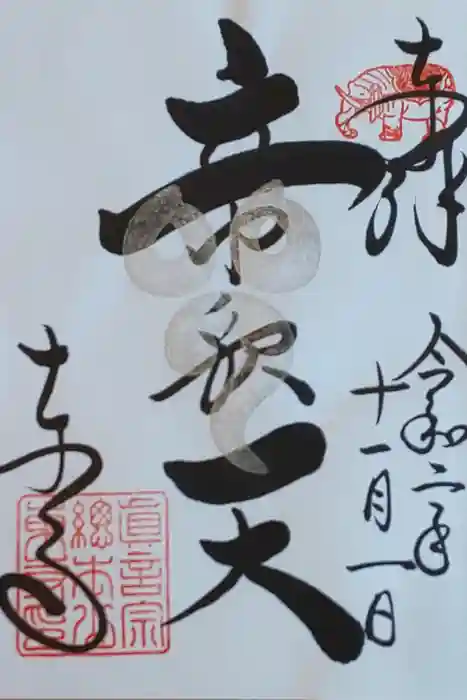 奉拝
令和二年
十一月一日
帝釈天
東寺
真言宗
總本山